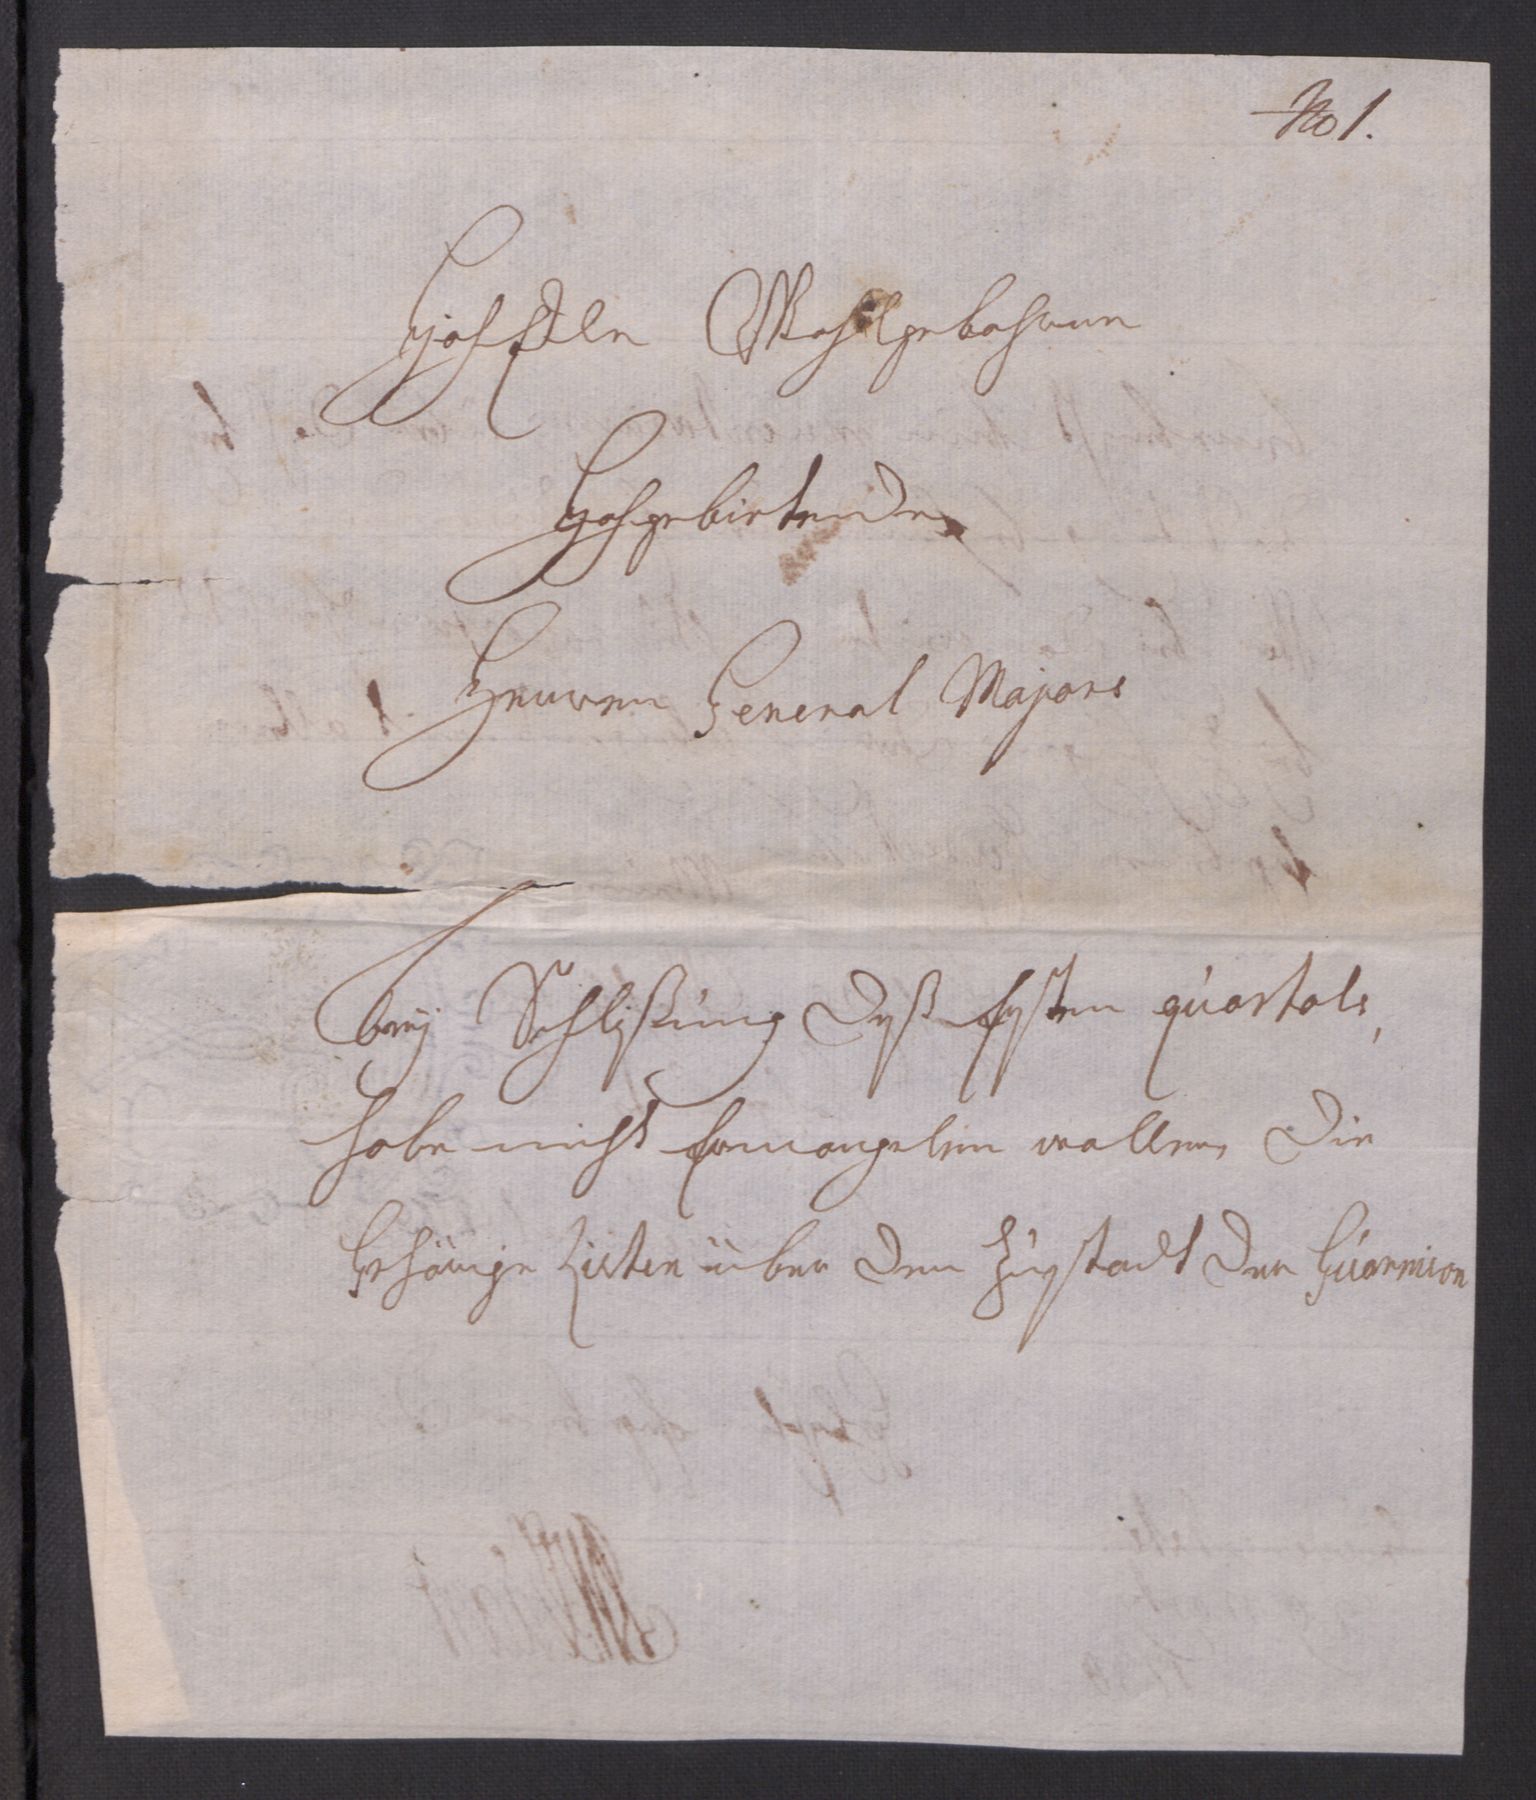 No 1.
HochEdler Wohlgebohrner
Hochgebietender
Herrer General Majors
beÿ Schlißung dyß Ersten quartals,
habe nicht Ermangelen wollen, die
Gehörige Listen über den Zugstadt der Guarnison